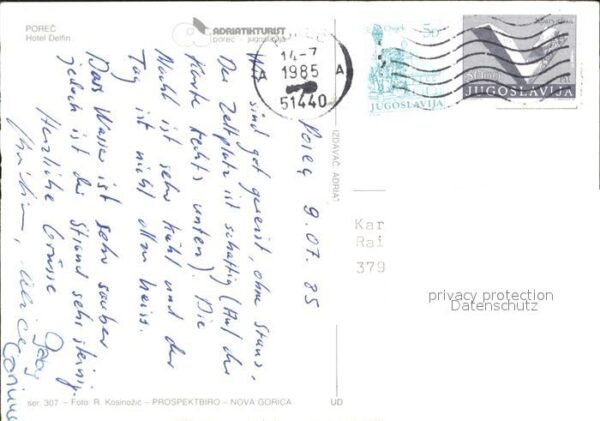 POREČ
Hotel Delfin
ADRIATIKTURIST
poreč - jugoslavija
14-7
1985
A A
51440
Osijek
50
JUGOSLAVIJA
JUGOSLAVIJA
Poreč 9.07.85
Wir sind gut gereist, ohne Staus,
Der Zeltplatz ist schattig (Auf der
Karte rechts unten). Die
Nacht ist sehr kühl und der
Tag ist nicht allzu heiss.
Das Wasser ist sehr sauber
jedoch ist der Strand sehr steinig.
Herzliche Grüsse
Alice
Corinne
IZDAVAČ ADRIAT
Kar
Rai
379
privacy protection
Datenschutz
ser. 307. – Foto: R. Kosinožić – PROSPEKTBIRO – NOVA GORICA
UD